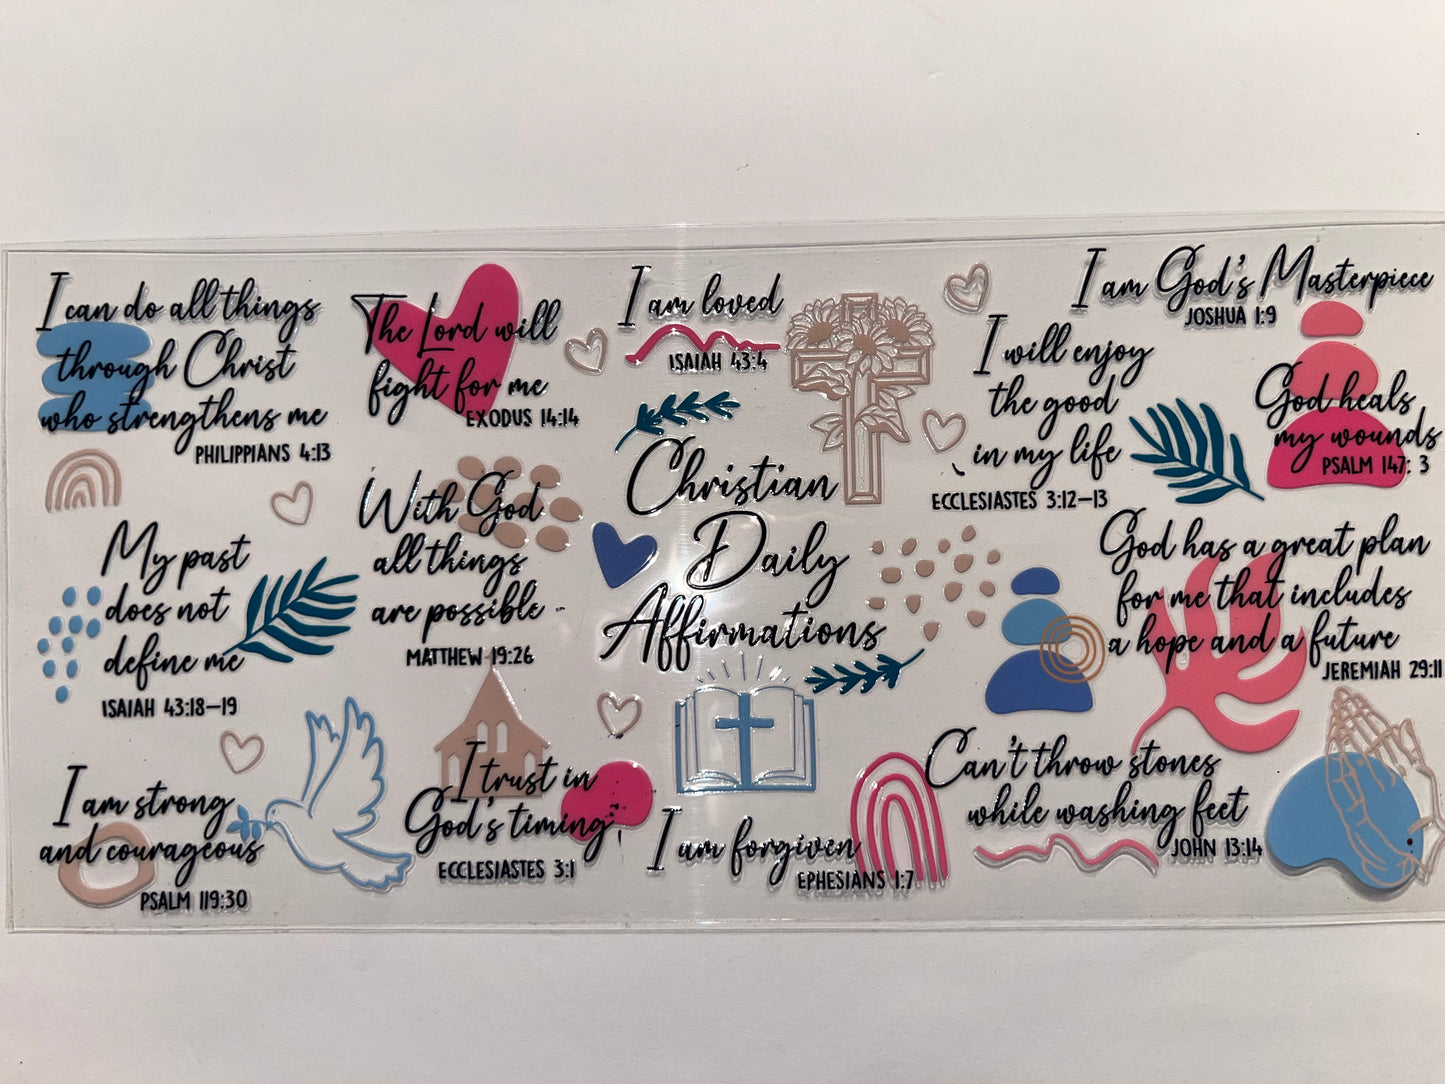 I can do all things
through Christ
who strengthens me
PHILIPPIANS 4:13
The Lord will
fight for me
EXODUS 14:14
I am loved
ISAIAH 43:4
I am God's Masterpiece
JOSHUA 1:9
I will enjoy
the good
in my life
ECCLESIASTES 3:12–13
God heals
my wounds
PSALM 147: 3
My past
does not
define me
ISAIAH 43:18–19
With God
all things
are possible
MATTHEW 19:26
Christian
Daily
Affirmations
God has a great plan
for me that includes
a hope and a future
JEREMIAH 29:11
I am strong
and courageous
PSALM 119:30
I trust in
God's timing
ECCLESIASTES 3:1
I am forgiven
EPHESIANS 1:7
Can't throw stones
while washing feet
JOHN 13:14